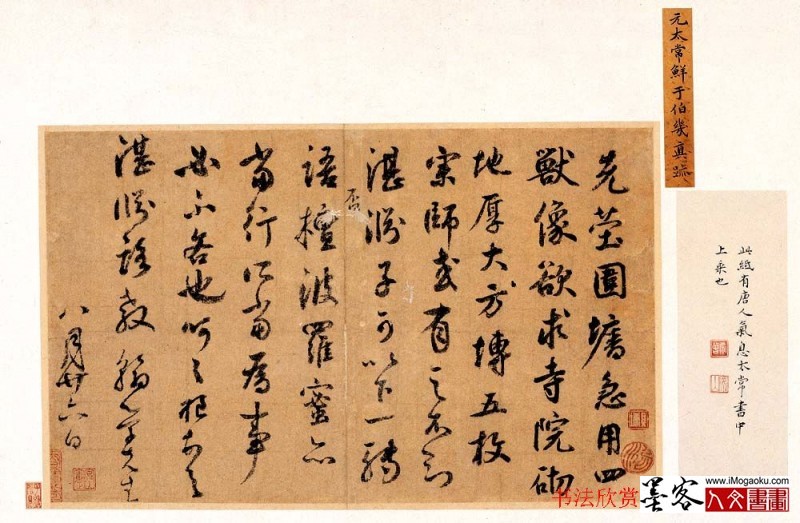 元太常鮮于伯幾真跡
此紙有唐人氣息太常書中
上乘也
先塋圍墻急用四
獸像欲求寺院砌
地厚大方塼五枚
宗師或有之不知
湛淵子可以下一轉
語否檀波羅蜜亦
當行所當為事
必不吝也呵呵
湛淵
八月廿六日
书法欣赏
墨客
人文書畫
www.iMogaoku.com